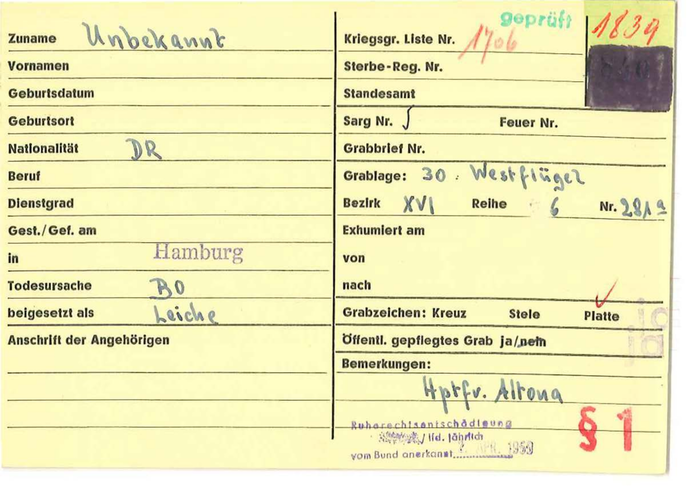 geprüft
1839
Zuname Unbekannt
Kriegsgr. Liste Nr. 1706
Vornamen
Sterbe-Reg. Nr.
Geburtsdatum
Standesamt
Geburtsort
Sarg Nr. 5 Feuer Nr.
Nationalität DR
Grabbrief Nr.
Beruf
Grablage: 30. Westflügel
Dienstgrad
Bezirk XVI Reihe 6 Nr. 281a
Gest./Gef. am
Exhumiert am
in Hamburg
von
Todesursache BO
nach
beigesetzt als Leiche
Grabzeichen: Kreuz Stele Platte
Anschrift der Angehörigen
Öffentl. gepflegtes Grab ja/nein
ja
Bemerkungen:
Hptfr. Altona
Ruherechtsentschädigung
/ lfd. jährlich
vom Bund anerkannt APR.
§ 1